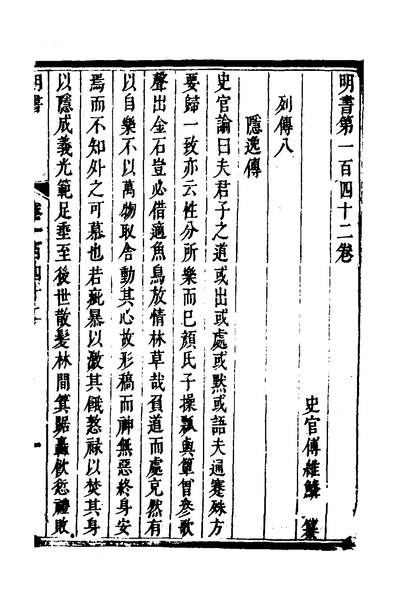 明書第一百四十二卷
史官傅維鱗 纂
列傳八
隱逸傳
史官論曰夫君子之道或出或處或默或語夫通蹇殊方
要歸一致亦云性分所樂而已顏氏子操瓢與簞曾參歌
聲出金石豈必借適魚鳥放情林草哉負道而處充然有
以自樂不以萬物取舍動其心故形稿而神無惡終身安
焉而不知外之可慕也若疵暴以激其餓憨祿以焚其身
以隱成義光範足垂至後世散髮林間箕踞轟飲愆禮敗
明書
卷一百四十二
一